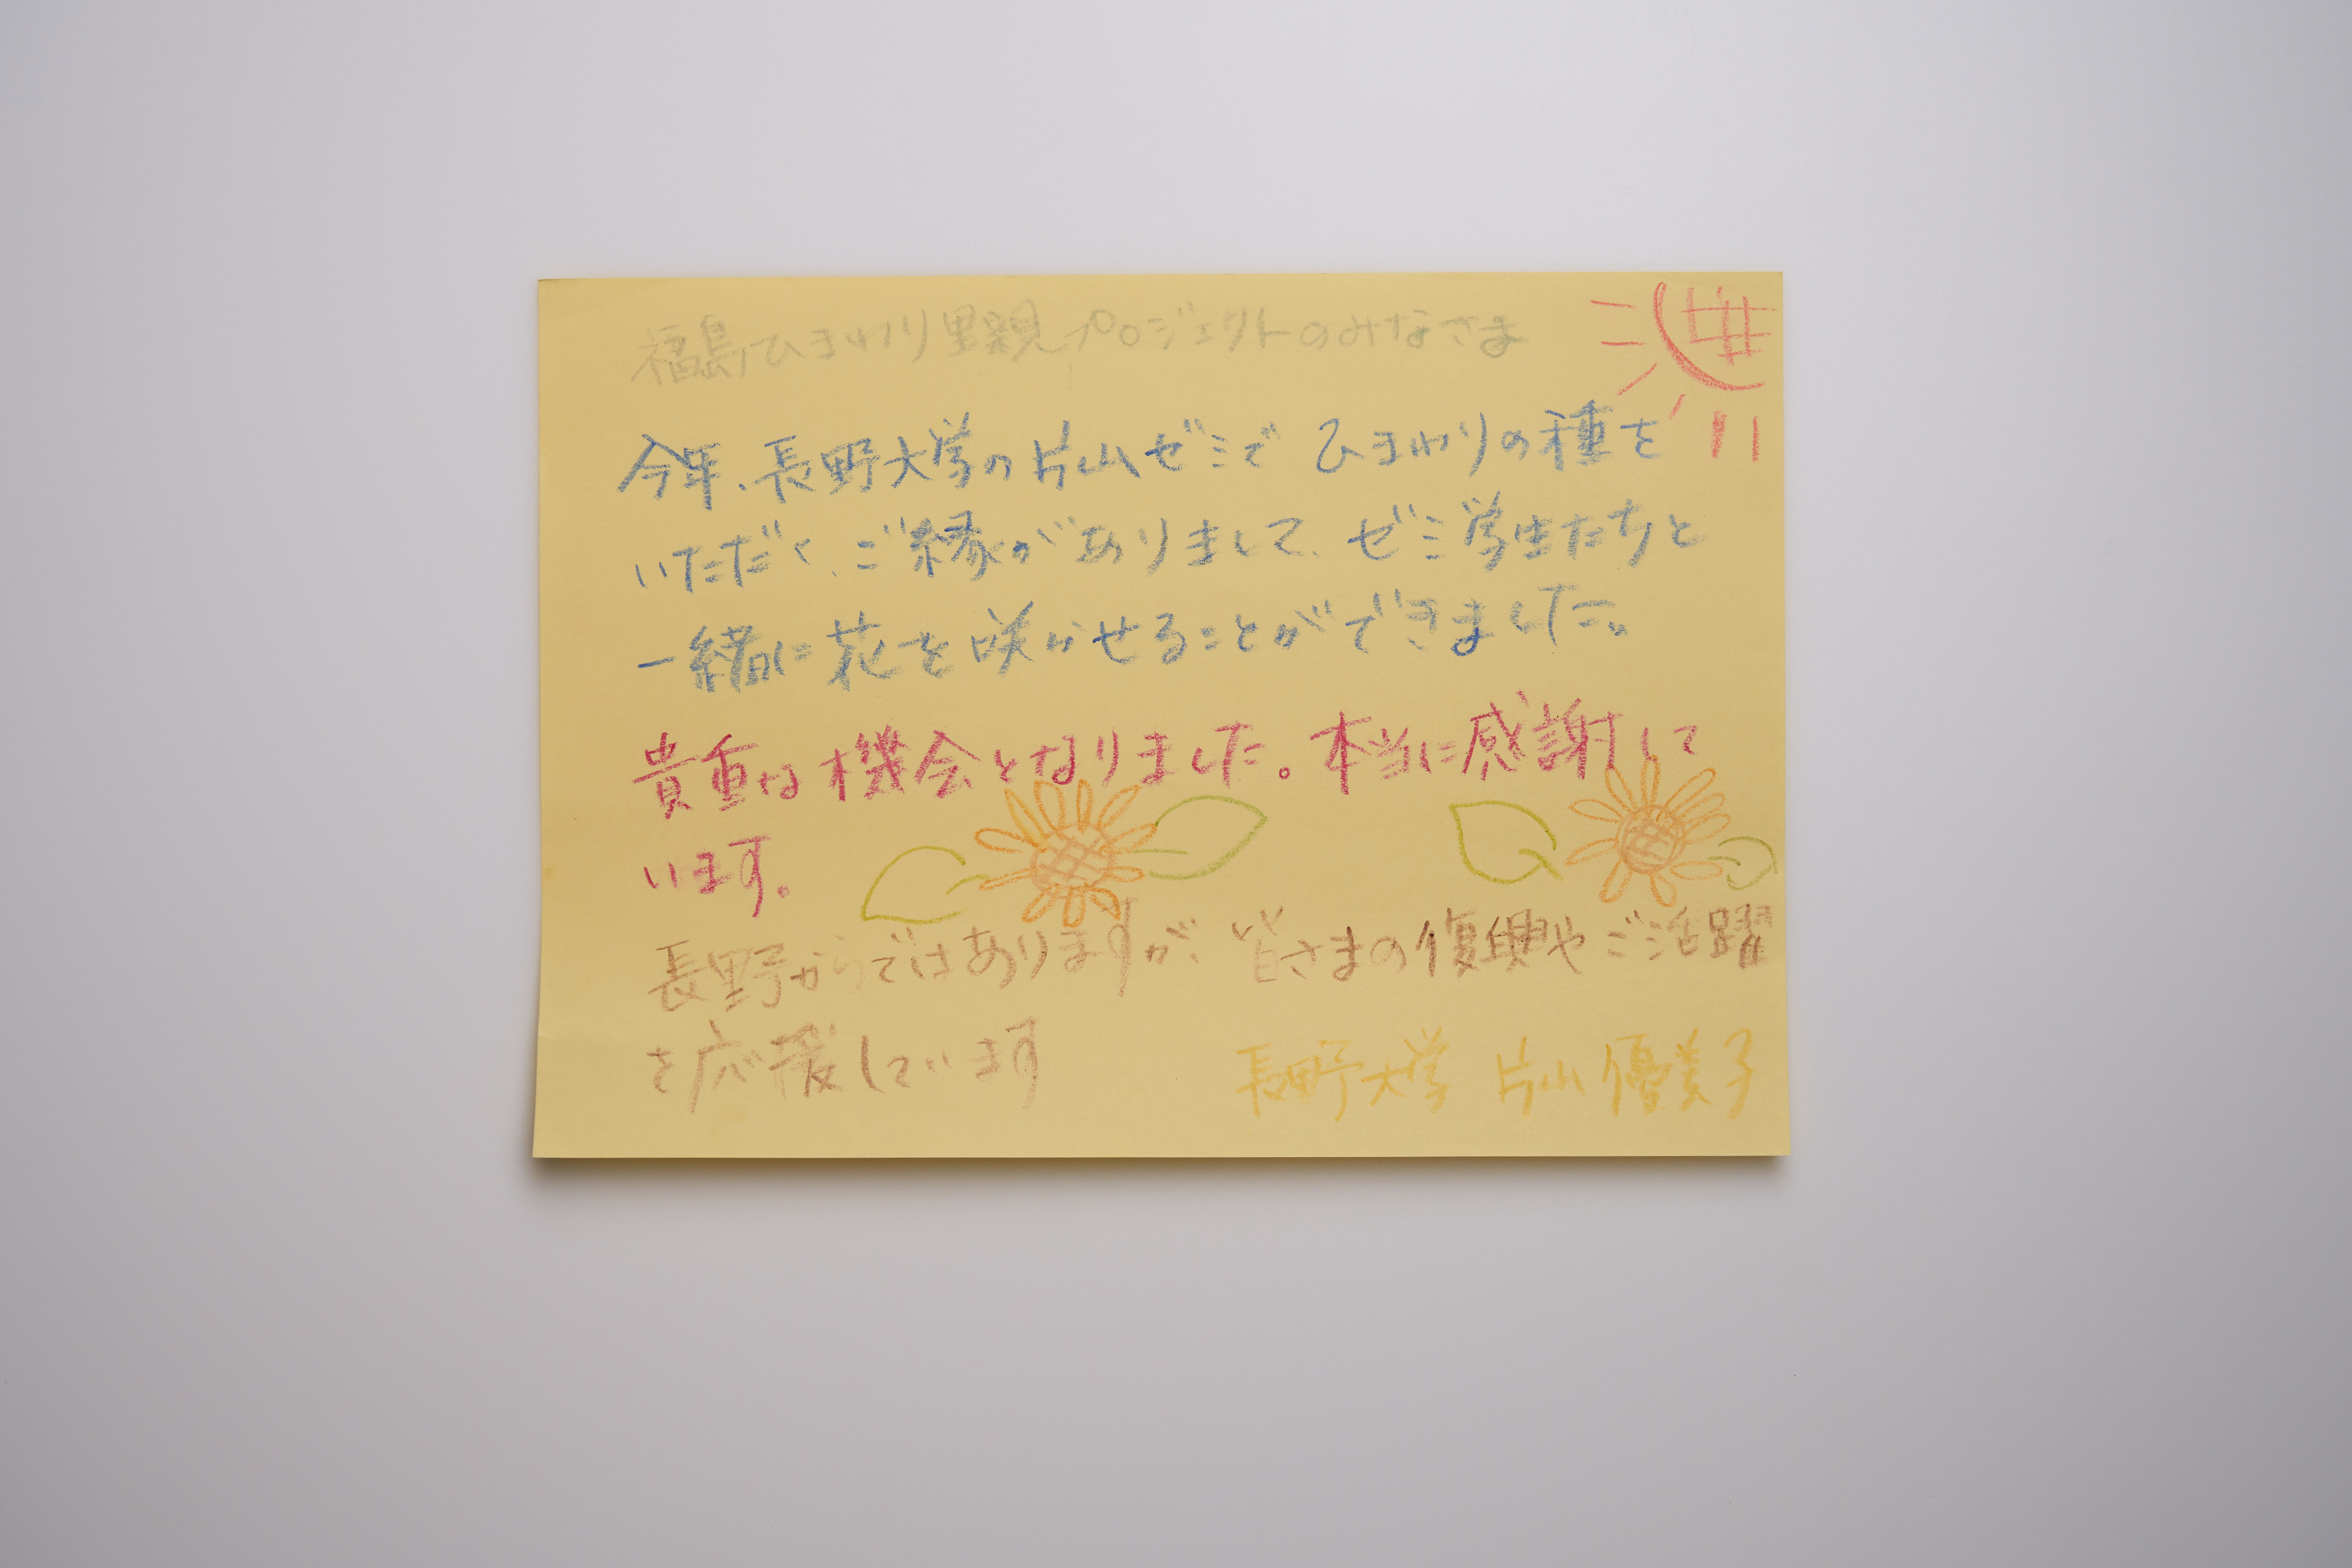 福島ひまわり里親プロジェクトのみなさま
今年、長野大学の片山ゼミで ひまわりの種を
いただく、ご縁がありまして、ゼミ学生たちと
一緒に花を咲かせることができました。
貴重な機会となりました。本当に感謝して
います。
長野からではありますが、皆さまの復興やご活躍
を応援しています
長野大学 片山優美子